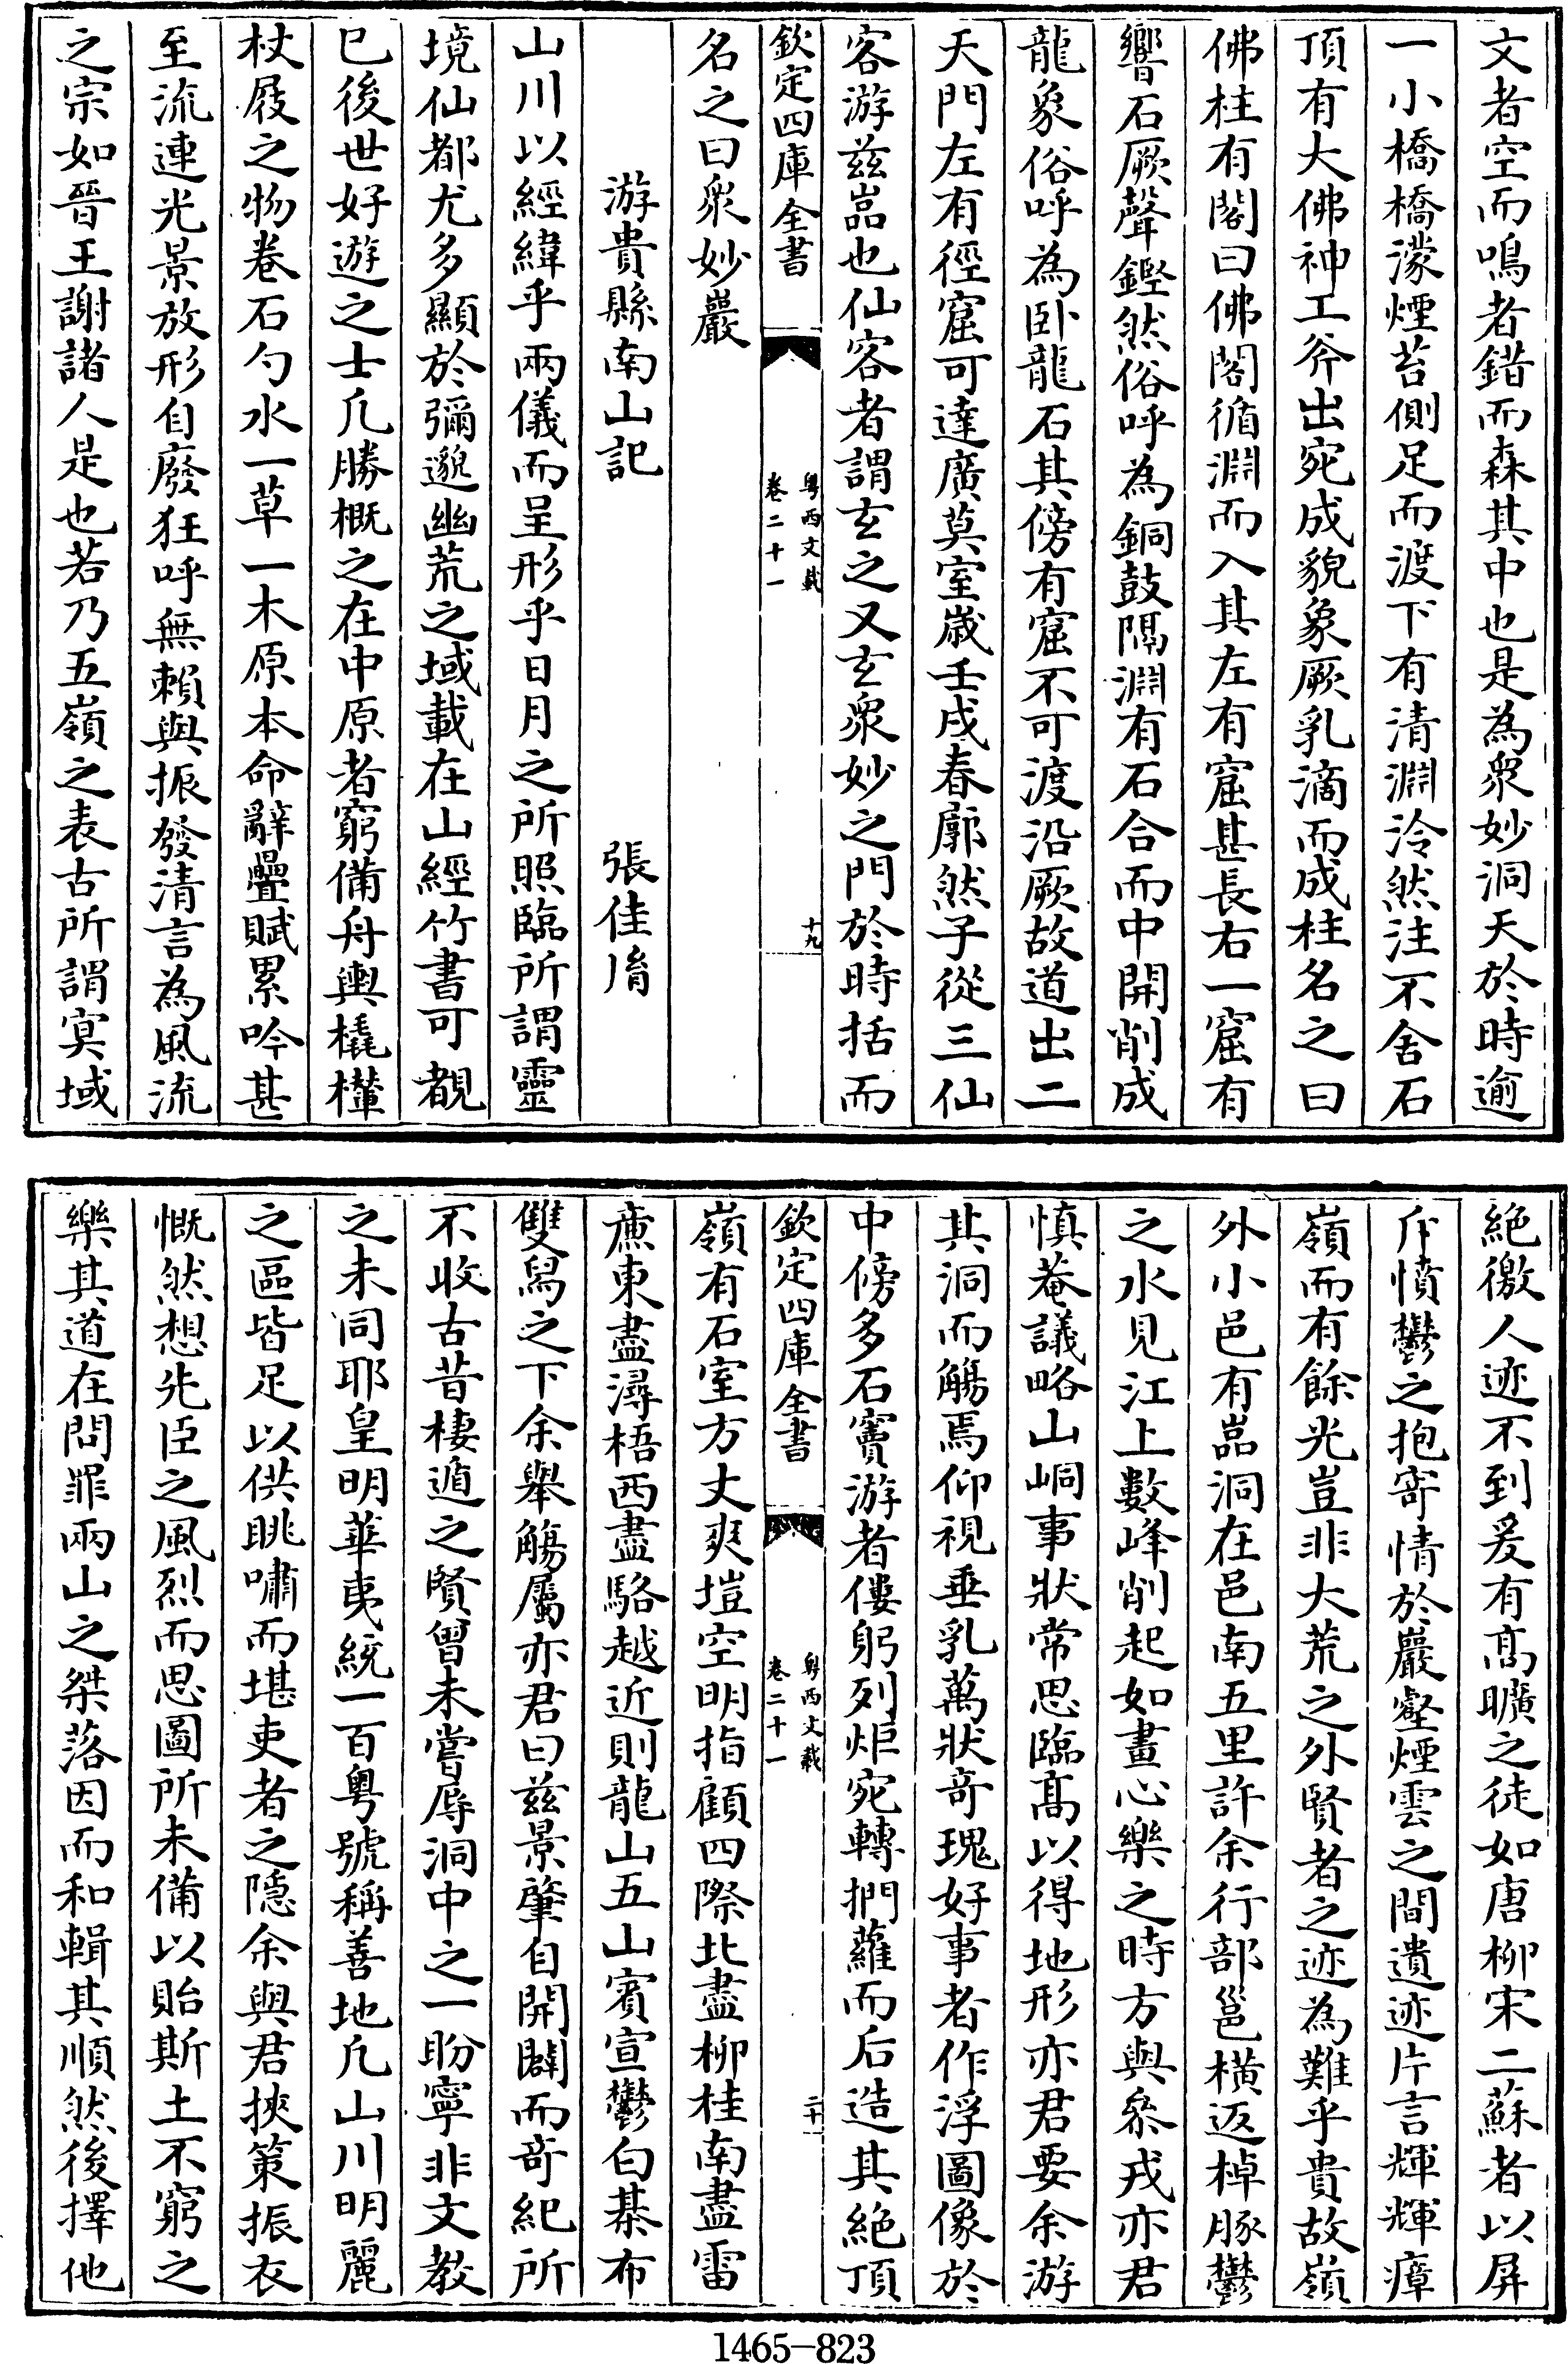 文者空而鳴者錯而森其中也是為衆妙洞天於時逾
一小橋橋濛煙苔側足而渡下有清淵泠然注不舍石
頂有大佛神工斧出宛成貌象厥乳滴而成柱名之曰
佛柱有閣曰佛閣循淵而入其左有窟甚長右一窟有
響石厥聲鏗然俗呼為銅鼓隔淵有石合而中開削成
龍象俗呼為卧龍石其傍有窟不可渡沿厥故道出二
天門左有徑窟可達廣莫室嵗壬戌春廓然子從三仙
客游兹嵓也仙客者謂玄之又玄衆妙之門於時括而
欽定四庫全書
粤西文載
卷二十一
十九
名之曰衆妙巖
游貴縣南山記
張佳胤
山川以經緯乎兩儀而呈形乎日月之所照臨所謂靈
境仙都尤多顯於彌邈幽荒之域載在山經竹書可覩
已後世好遊之士凡勝概之在中原者窮備舟輿橇檋
杖屐之物卷石勺水一草一木原本命辭疊賦累吟甚
至流連光景放形自廢狂呼無賴與振發清言為風流
之宗如晉王謝諸人是也若乃五嶺之表古所謂寞域
絶徼人迹不到爰有髙曠之徒如唐柳宋二蘇者以屏
斥憤鬱之抱寄情於巖壑煙雲之間遺迹片言輝輝瘴
嶺而有餘光豈非大荒之外賢者之迹為難乎貴故嶺
外小邑有嵓洞在邑南五里許余行部邕横返棹豚鬱
之水見江上數峰削起如畫心樂之時方與叅戎亦君
慎菴議略山峒事狀常思臨髙以得地形亦君要余游
其洞而觴焉仰視垂乳萬狀竒瑰好事者作浮圖像於
中傍多石竇游者僂躬列炬宛轉捫蘿而后造其絶頂
欽定四庫全書
粤西文載
卷二十一
二十
嶺有石室方丈爽塏空明指顧四際北盡柳桂南盡雷
亷東盡潯梧西盡駱越近則龍山五山賓宣鬱白棊布
雙舄之下余舉觴屬亦君曰兹景肇自開闢而竒紀所
不收古昔棲遁之賢曽未嘗辱洞中之一盼寧非文教
之未同耶皇明華夷統一百粤號稱善地凡山川明麗
之區皆足以供眺嘯而堪吏者之隠余與君挾策振衣
慨然想先臣之風烈而思圖所未備以貽斯土不窮之
樂其道在問罪兩山之桀落因而和輯其順然後擇他
1465-823